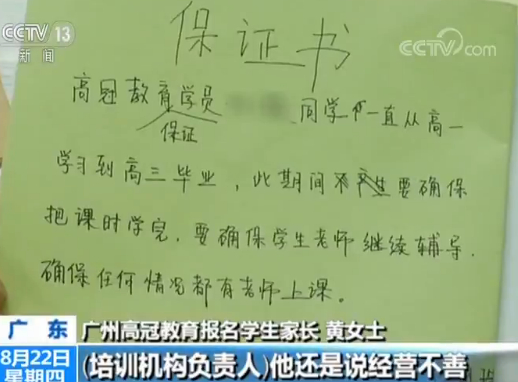 CCTV 13
新闻
CCTV.com
保证书
高冠教育学员 同学个一直从高一
保证
学习到高三毕业，此期间不 要确保
把课时学完，要确保学生老师继续辅导，
确保任何情况都有老师上课。
广东
广州高冠教育报名学生家长 黄女士
8月22日
星期四
(培训机构负责人)他还是说经营不善